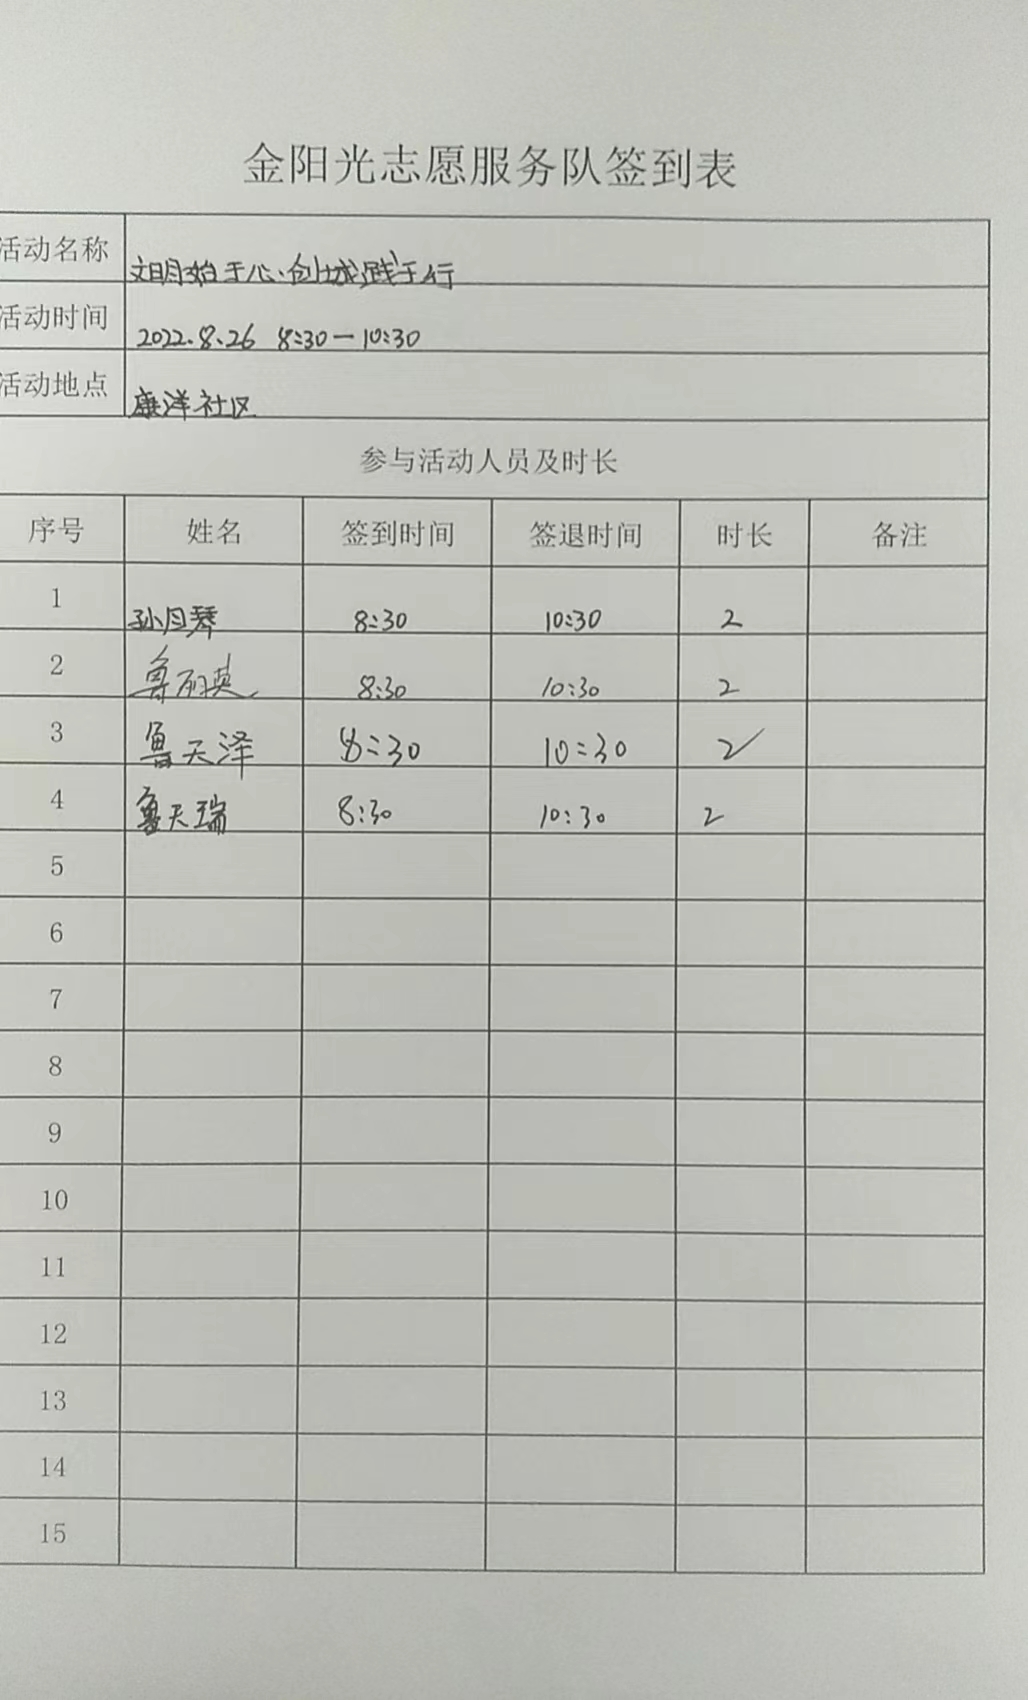 金阳光志愿服务队签到表
活动名称 文明始于心·创城践于行
活动时间 2022.8.26 8:30—10:30
活动地点 康洋社区
参与活动人员及时长
序号 姓名 签到时间 签退时间 时长 备注
1 孙月琴 8:30 10:30 2
2 鲁丽英 8:30 10:30 2
3 鲁天泽 8:30 10:30 2
4 鲁天瑞 8:30 10:30 2
5
6
7
8
9
10
11
12
13
14
15